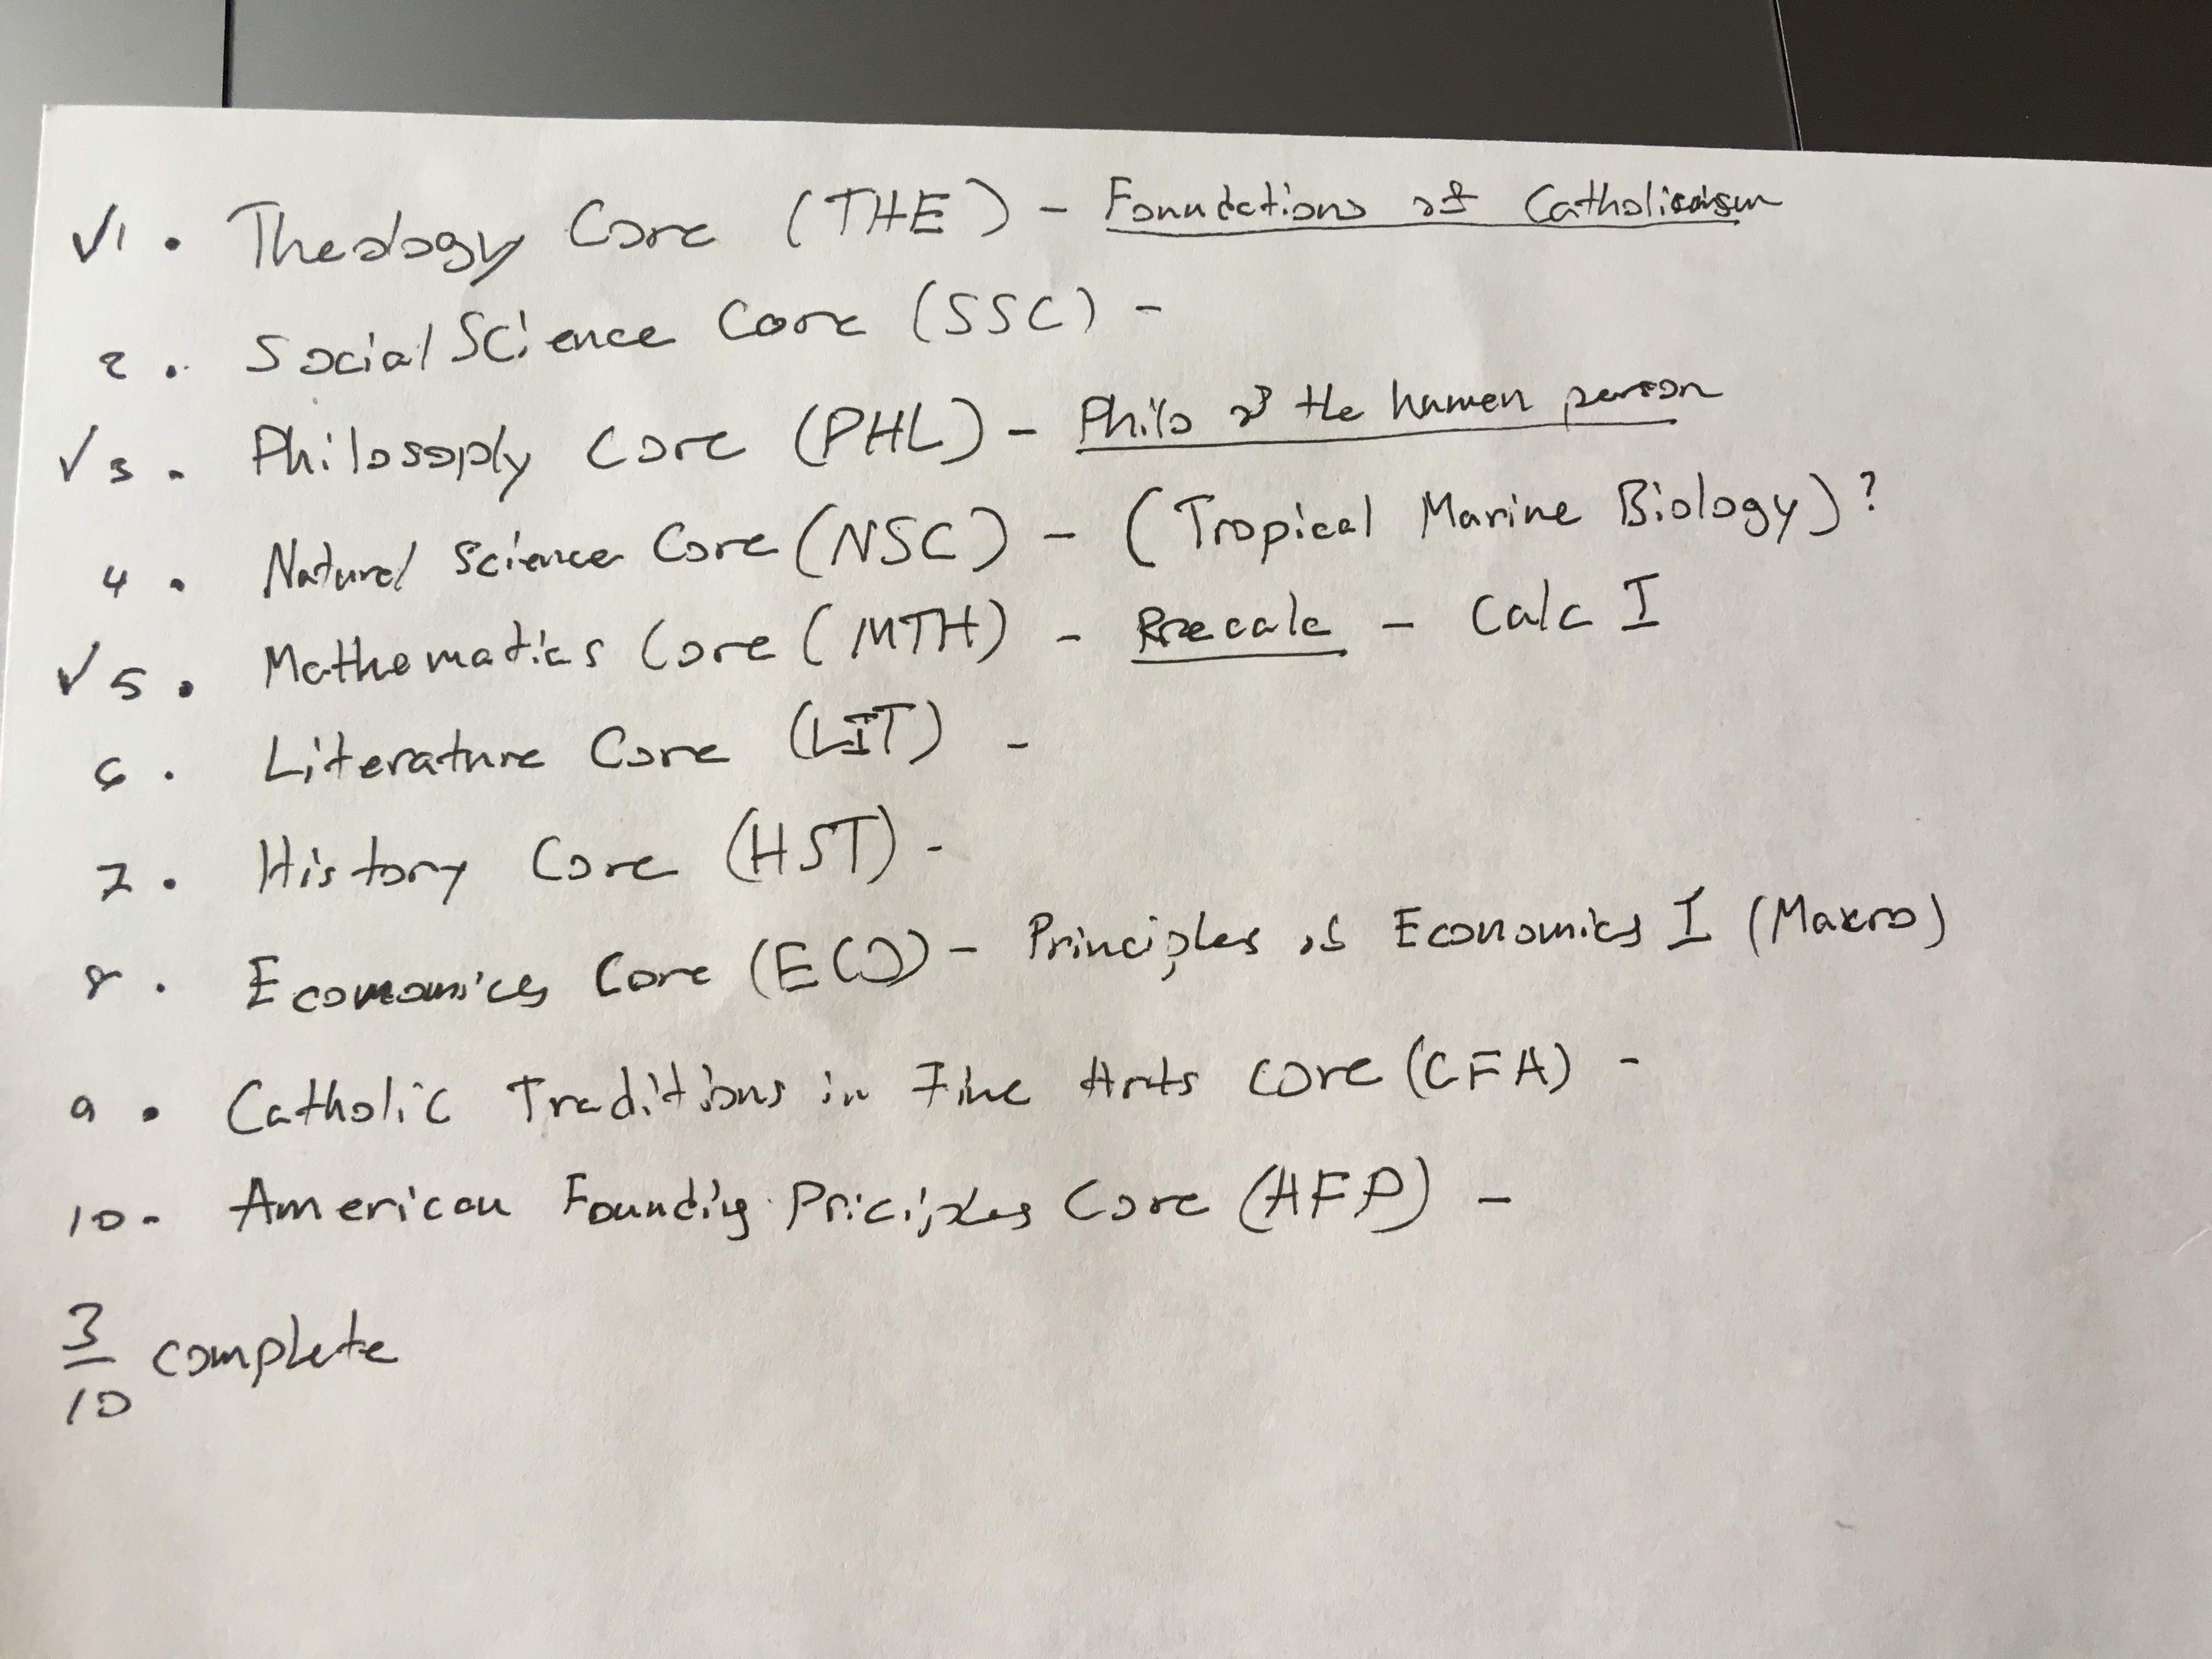 ✓1. Theology Core (THE) - Foundations of Catholicism
2. Social Science Core (SSC) -
✓3. Philosoply Core (PHL) - Philo of the human person
4. Natural Science Core (NSC) - (Tropical Marine Biology)?
✓5. Mathematics Core (MTH) - Precalc - Calc I
6. Literature Core (LIT) -
7. History Core (HST) -
8. Economics Core (ECO) - Principles of Economics I (Makro)
9. Catholic Traditions in Fine Arts Core (CFA) -
10. American Foundig Priciples Core (AFP) -
3/10 complete